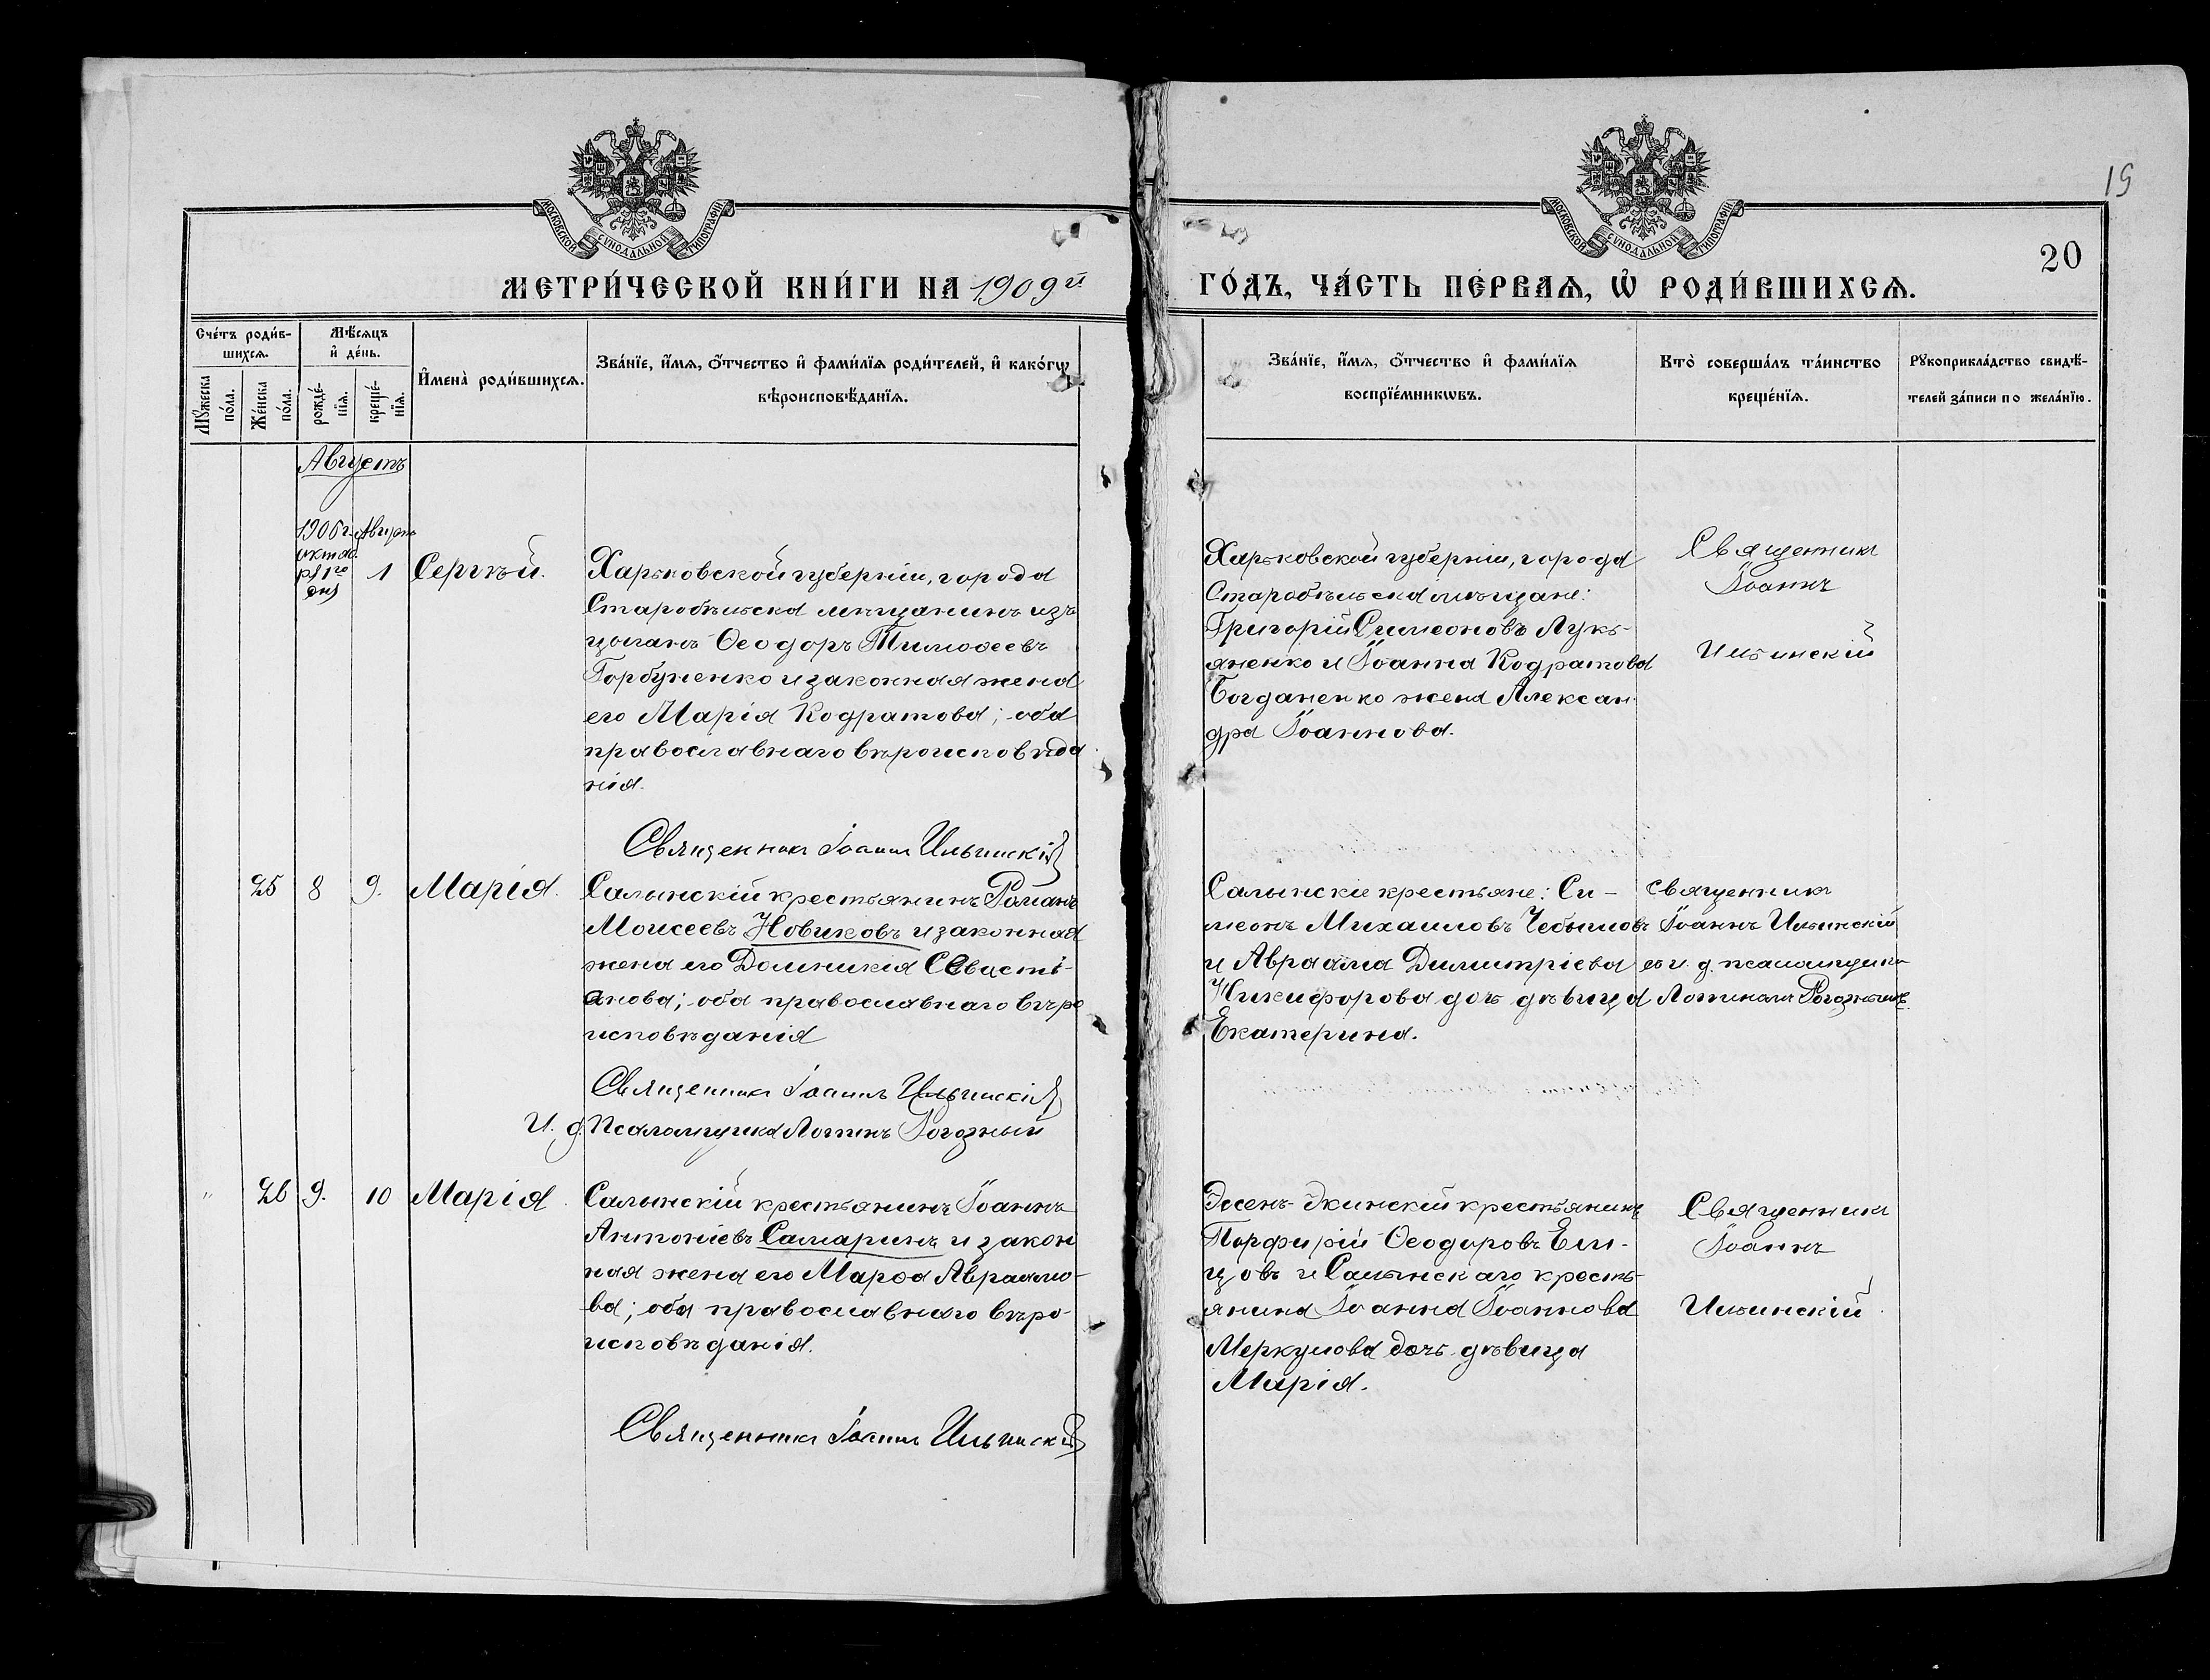 19
20
МОСКОВСКОЙ СѴНОДАЛЬНОЙ ТИПОГРАФІИ
МОСКОВСКОЙ СѴНОДАЛЬНОЙ ТИПОГРАФІИ
МЕТРИ́ЧЕСКОЙ КНИ́ГИ НА 1909й ГО́ДЪ, ЧА́СТЬ ПЕ́РВАѦ, Ѽ РОДИ́ВШИХСѦ.
Сче́тъ роди́в-
шихсѧ.
Мꙋ́жеска по́ла.
Же́нска по́ла.
Мѣ́сѧцъ
и҆ де́нь.
рожде́-нїѧ.
креще́-нїѧ.
И҆мена̀ роди́вшихсѧ.
Зва́нїе, и҆́мѧ, ѻ҆́тчество и҆ фами́лїѧ роди́телей, и҆ како́гѡ
вѣроисповѣ́данїѧ.
Зва́нїе, и҆́мѧ, ѻ҆́тчество и҆ фами́лїѧ
воспрїе́мникѡвъ.
Кто̀ соверша́лъ та́инство
креще́нїѧ.
Рꙋкоприкла́дство свидѣ́-
телей за́писи по жела́нїю.
Августъ
1906 г. Августъ
октяб.
ря 1го
дня
1 Сергѣй.
Харьковской губерніи, города
Старобѣльска мѣщанинъ изъ
цыганъ Ѳеодоръ Тимоѳеевъ
Горбуненко и законная жена
его Марія Кодратова; оба
православнаго вѣроисповѣда
нія.
Священникъ Іоаннъ Ильинскій
Харьковской губерніи, города
Старобѣльска мѣщане:
Григорій Симеоновъ Лукь-
яненко и Іоанна Кодратова
Богданенко жена Алексан-
дра Іоаннова.
Священникъ
Іоаннъ
Ильинскій
25 8 9. Марія.
Салынскій крестьянинъ Романъ
Моисеевъ Новиковъ и законная
жена его Домникія Севасті-
анова; оба православнаго вѣро
исповѣданія
Священникъ Іоаннъ Ильинскій
И. д. Псаломщика Логинъ Рогозный
Салынскіе крестьяне: Си-
меонъ Михаиловъ Чебышовъ
и Авраама Димитріева
Никифорова дочь дѣвица
Екатерина.
Священникъ
Іоаннъ Ильинскій
съ и. д. псаломщика
Логиномъ Рогознымъ.
" 26 9. 10 Марія
Салынскій крестьянинъ Іоаннъ
Антоніевъ Самаринъ и закон
ная жена его Марѳа Авраамо-
ва; оба православнаго вѣро-
исповѣданія.
Священникъ Іоаннъ Ильинскій
Эсенъ-Экинскій крестьянинъ
Порфирій Ѳеодоровъ Ели-
цовъ и Салынскаго кресть-
янина Іоанна Іоаннова
Меркулова дочь дѣвица
Марія.
Священникъ
Іоаннъ
Ильинскій